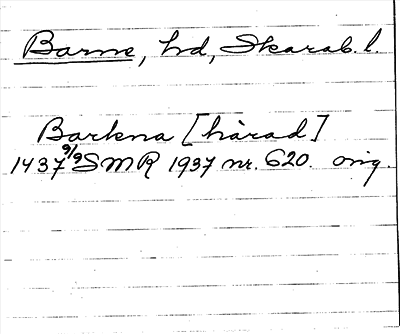 Barne, hd, Skarab. l.
Barkna [hárad]
1437 9/9 SMR 1937 nr. 620. orig.